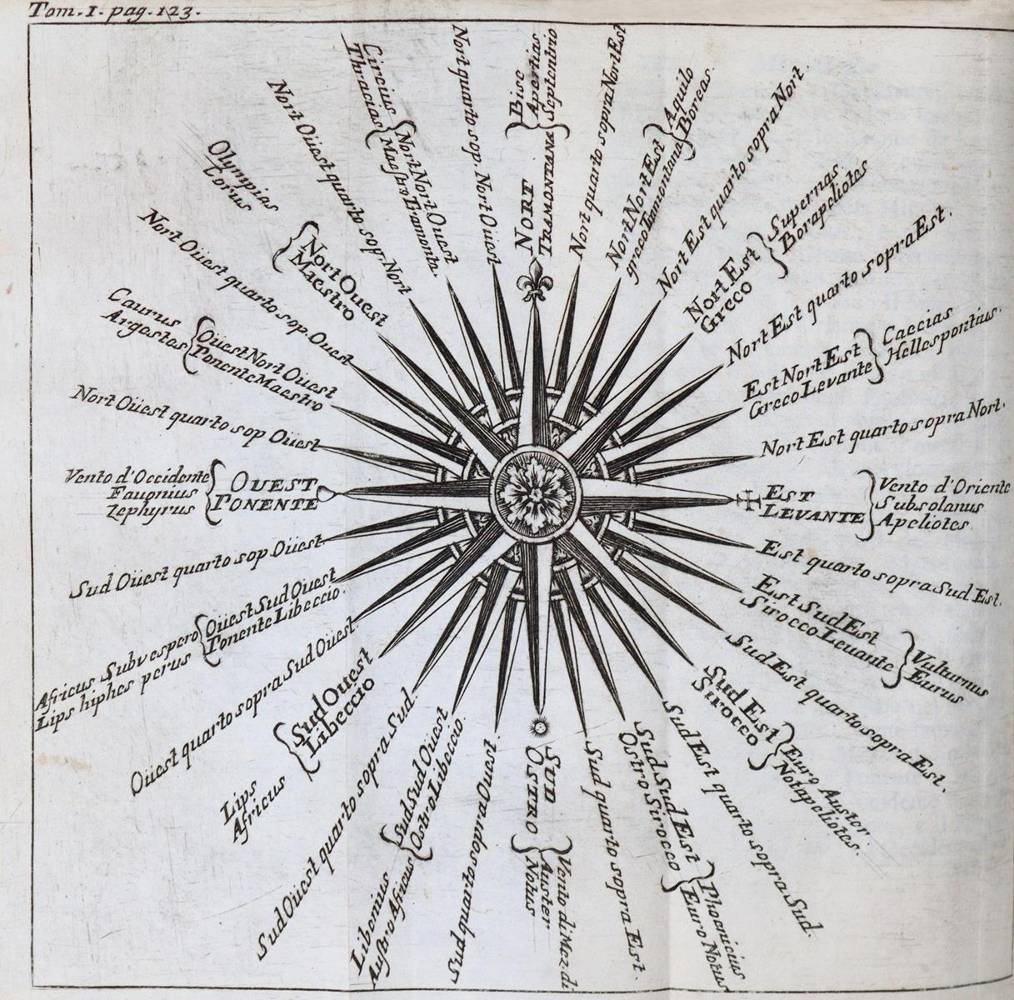 Tom. I. pag. 123.
Bise
Apertias
Septentrio
NORT
TRAMONTANA
Nort quarto sopra Nort Est
Aquilo
Boreas.
Nort Nort Est
greco Tramontana
Nort Est quarto sopra Nort.
Supernas
Borapeliotes
Nort Est
Greco
Nort Est quarto sopra Est.
Caecias
Hellespontius.
Est Nort Est
Greco Levante
Nort Est quarto sopra Nort.
EST
LEVANTE
Vento d'Oriente
Subsolanus
Apeliotes
Est quarto sopra Sud Est.
Est Sud Est
Sirocco Levante
Vulturnus
Eurus
Sud Est quarto sopra Est.
Sud Est
Sirocco
Euro Auster
Notapeliotes.
Sud Est quarto sopra Sud.
Sud Sud Est
Ostro Sirocco
Phoenicius
Euro Notus
Sud quarto sopra Est.
SUD
OSTRO
Vento di Mezo di
Auster
Notus
Sud quarto sopra Ouest
Sud Sud Oüest
Ostro Libeccio.
Libonius
Austro Africus
Sud Oüest quarto sopra Sud
Sud Ouest
Libeccio
Lips
Africus
Oüest quarto sopra Sud Oüest
Oüest Sud Ouest
Ponente Libeccio.
Africus Subvespero
Lips hiphes perus
Sud Oüest quarto sop Oüest.
OUEST
PONENTE
Vento d'Occidente
Faugnius
Zephyrus
Nort Oüest quarto sop Oüest
Oüest Nort Oüest
Ponente Maestro
Caurus
Argastes
Nort Oüest quarto sop. Ouest
Nort Ouest
Maestro
Olympias
Corius
Nort Oüest quarto sop. Nort
Nort Nort Ouest
Maestro Tramonta.
Circius
Thracias
Nort quarto sop. Nort Ouest